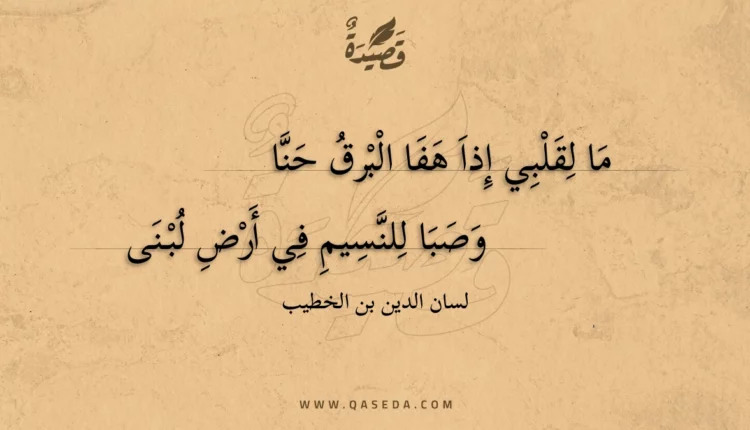 قَصِيْدَةٌ
مَا لِقَلْبِي إِذاَ هَفَا الْبْرقُ حَنَّا
وَصَبَا لِلنَّسِيمِ فِي أَرْضِ لُبْنَى
لسان الدين بن الخطيب
WWW.QASEDA.COM